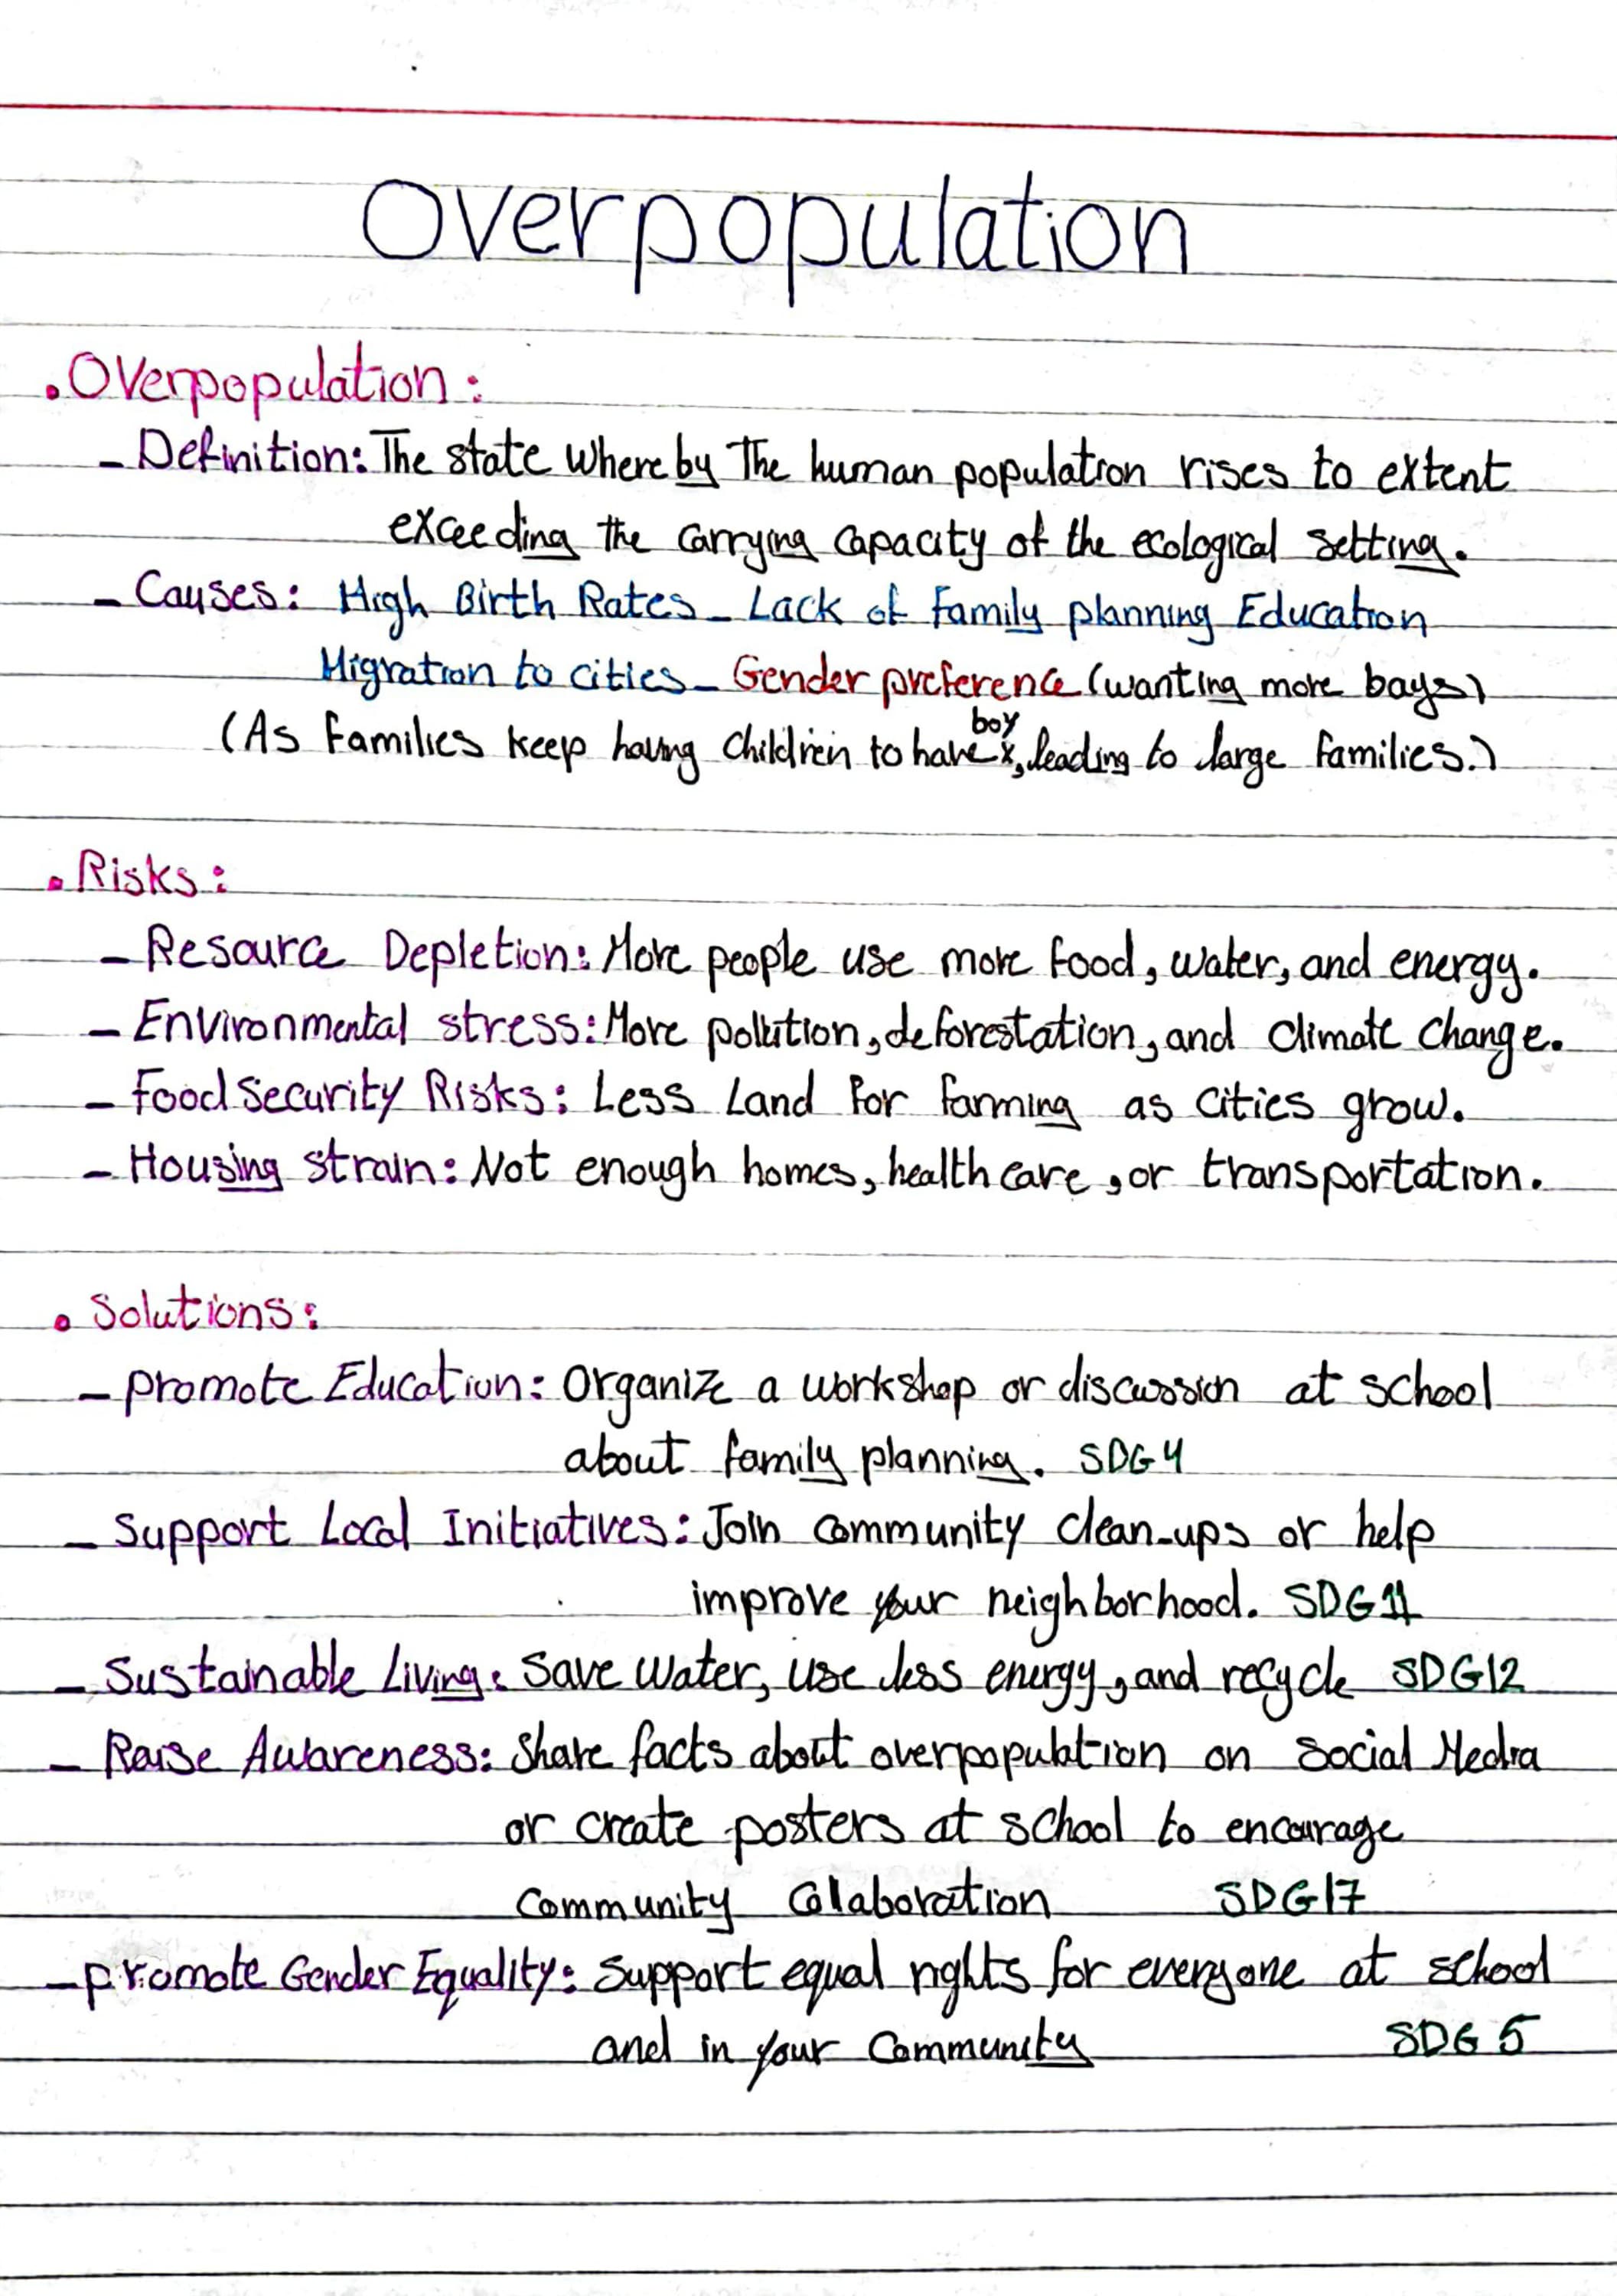 Overpopulation
• Overpopulation:
- Definition: The state whereby The human population rises to extent
exceeding the carrying capacity of the ecological setting.
- Causes: High Birth Rates - Lack of family planning Education
Migration to cities - Gender preference (wanting more boys)
boy
(As families keep having children to have x, leading to large families.)
• Risks:
- Resource Depletion: More people use more food, water, and energy.
- Environmental stress: More pollution, deforestation, and climate change.
- Food security Risks: Less Land for farming as cities grow.
- Housing strain: Not enough homes, healthcare, or transportation.
• Solutions:
- promote Education: Organize a workshop or discussion at school
about family planning. SDG4
- Support Local Initiatives: Join community clean-ups or help
improve your neighborhood. SDG11
- Sustainable Living: Save water, use less energy, and recycle SDG12
- Raise Awareness: Share facts about overpopulation on Social Media
or create posters at school to encourage
Community Colaboration SDG17
- promote Gender Equality: Support equal rights for everyone at school
and in your Community SDG 5